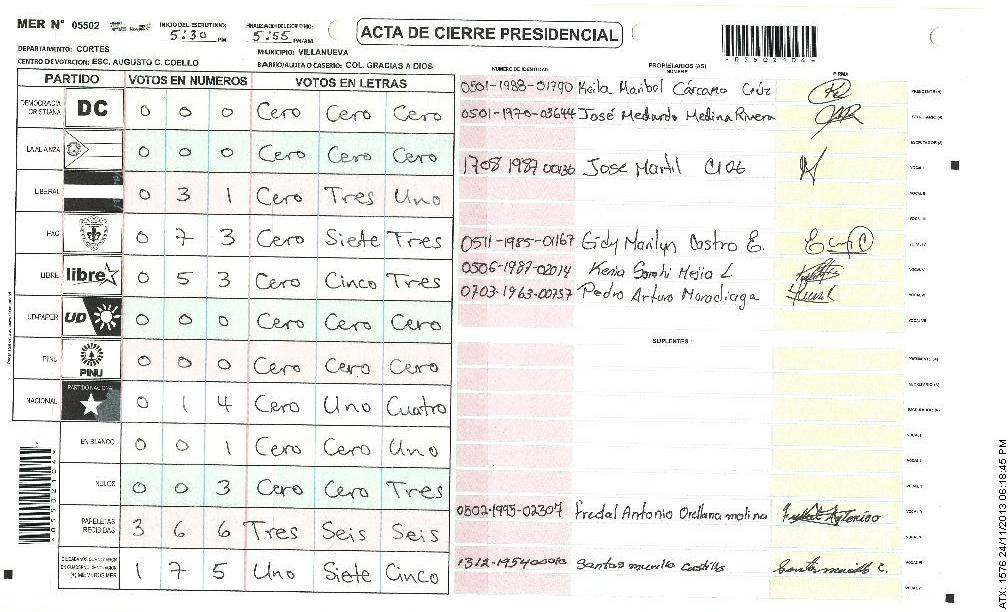 MER Nº 05502
INICIO DEL ESCRUTINIO: 5:30 PM
FINALIZACION DEL ESCRUTINIO: 5:55 PM/AM
ACTA DE CIERRE PRESIDENCIAL
DEPARTAMENTO: CORTES
MUNICIPIO: VILLANUEVA
CENTRO DE VOTACION: ESC. AUGUSTO C. COELLO
BARRIO/ALDEA O CASERIO: COL. GRACIAS A DIOS
PARTIDO VOTOS EN NUMEROS VOTOS EN LETRAS
DEMOCRACIA CRISTIANA DC 0 0 0 Cero Cero Cero
LA ALIANZA 0 0 0 Cero Cero Cero
LIBERAL 0 3 1 Cero Tres Uno
PAC 0 7 3 Cero Siete Tres
LIBRE libre 0 5 3 Cero Cinco Tres
UD-FAPER UD 0 0 0 Cero Cero Cero
PINU PINU 0 0 0 Cero Cero Cero
NACIONAL PARTIDO NACIONAL 0 1 4 Cero Uno Cuatro
EN BLANCO 0 0 1 Cero Cero Uno
NULOS 0 0 3 Cero Cero Tres
PAPELETAS RECIBIDAS 3 6 6 Tres Seis Seis
1 7 5 Uno Siete Cinco
NUMERO DE IDENTIDAD PROPIETARIOS (AS) NOMBRE FIRMA
0501-1988-01790 Keila Maribel Cárcamo Crúz PRESIDENTE (A)
0501-1970-03644 José Medardo Medina Rivera SECRETARIO (A)
ESCRUTADOR (A)
1708 1987 00136 Jose Martil VOCAL I
VOCAL II
VOCAL III
0511-1985-01167 Eidy Marilyn Castro E. VOCAL IV
0506-1987-02014 Kenia Sarahi Mejia L VOCAL V
0703-1963-00757 Pedro Arturo Maradiaga VOCAL VI
VOCAL VII
SUPLENTES
PRESIDENTE (A)
SECRETARIO (A)
ESCRUTADOR (A)
VOCAL I
VOCAL II
VOCAL III
0502-1995-02307 Fredal Antonio Orellana molina VOCAL IV
VOCAL V
Santos murillo Castillo VOCAL VI
VOCAL VII
ATX: 1576 24/11/2013 06:18:45 PM